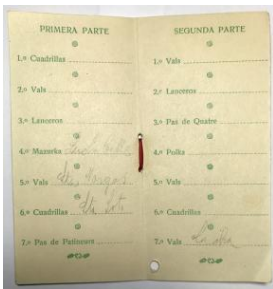 PRIMERA PARTE
1.º Cuadrillas
2.º Vals
3.º Lanceros
4.º Mazurka
5.º Vals
6.º Cuadrillas Sta Soto
7.º Pas de Patineurs
SEGUNDA PARTE
1.º Vals
2.º Lanceros
3.º Pas de Quatre
4.º Polka
5.º Vals
6.º Cuadrillas
7.º Vals